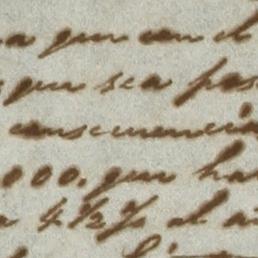 a que con el
que sea pas
consecuencia
000. que ha
a 4 1/2 % al a